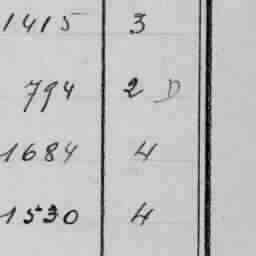 1415 3
794 2 D
1684 4
1530 4